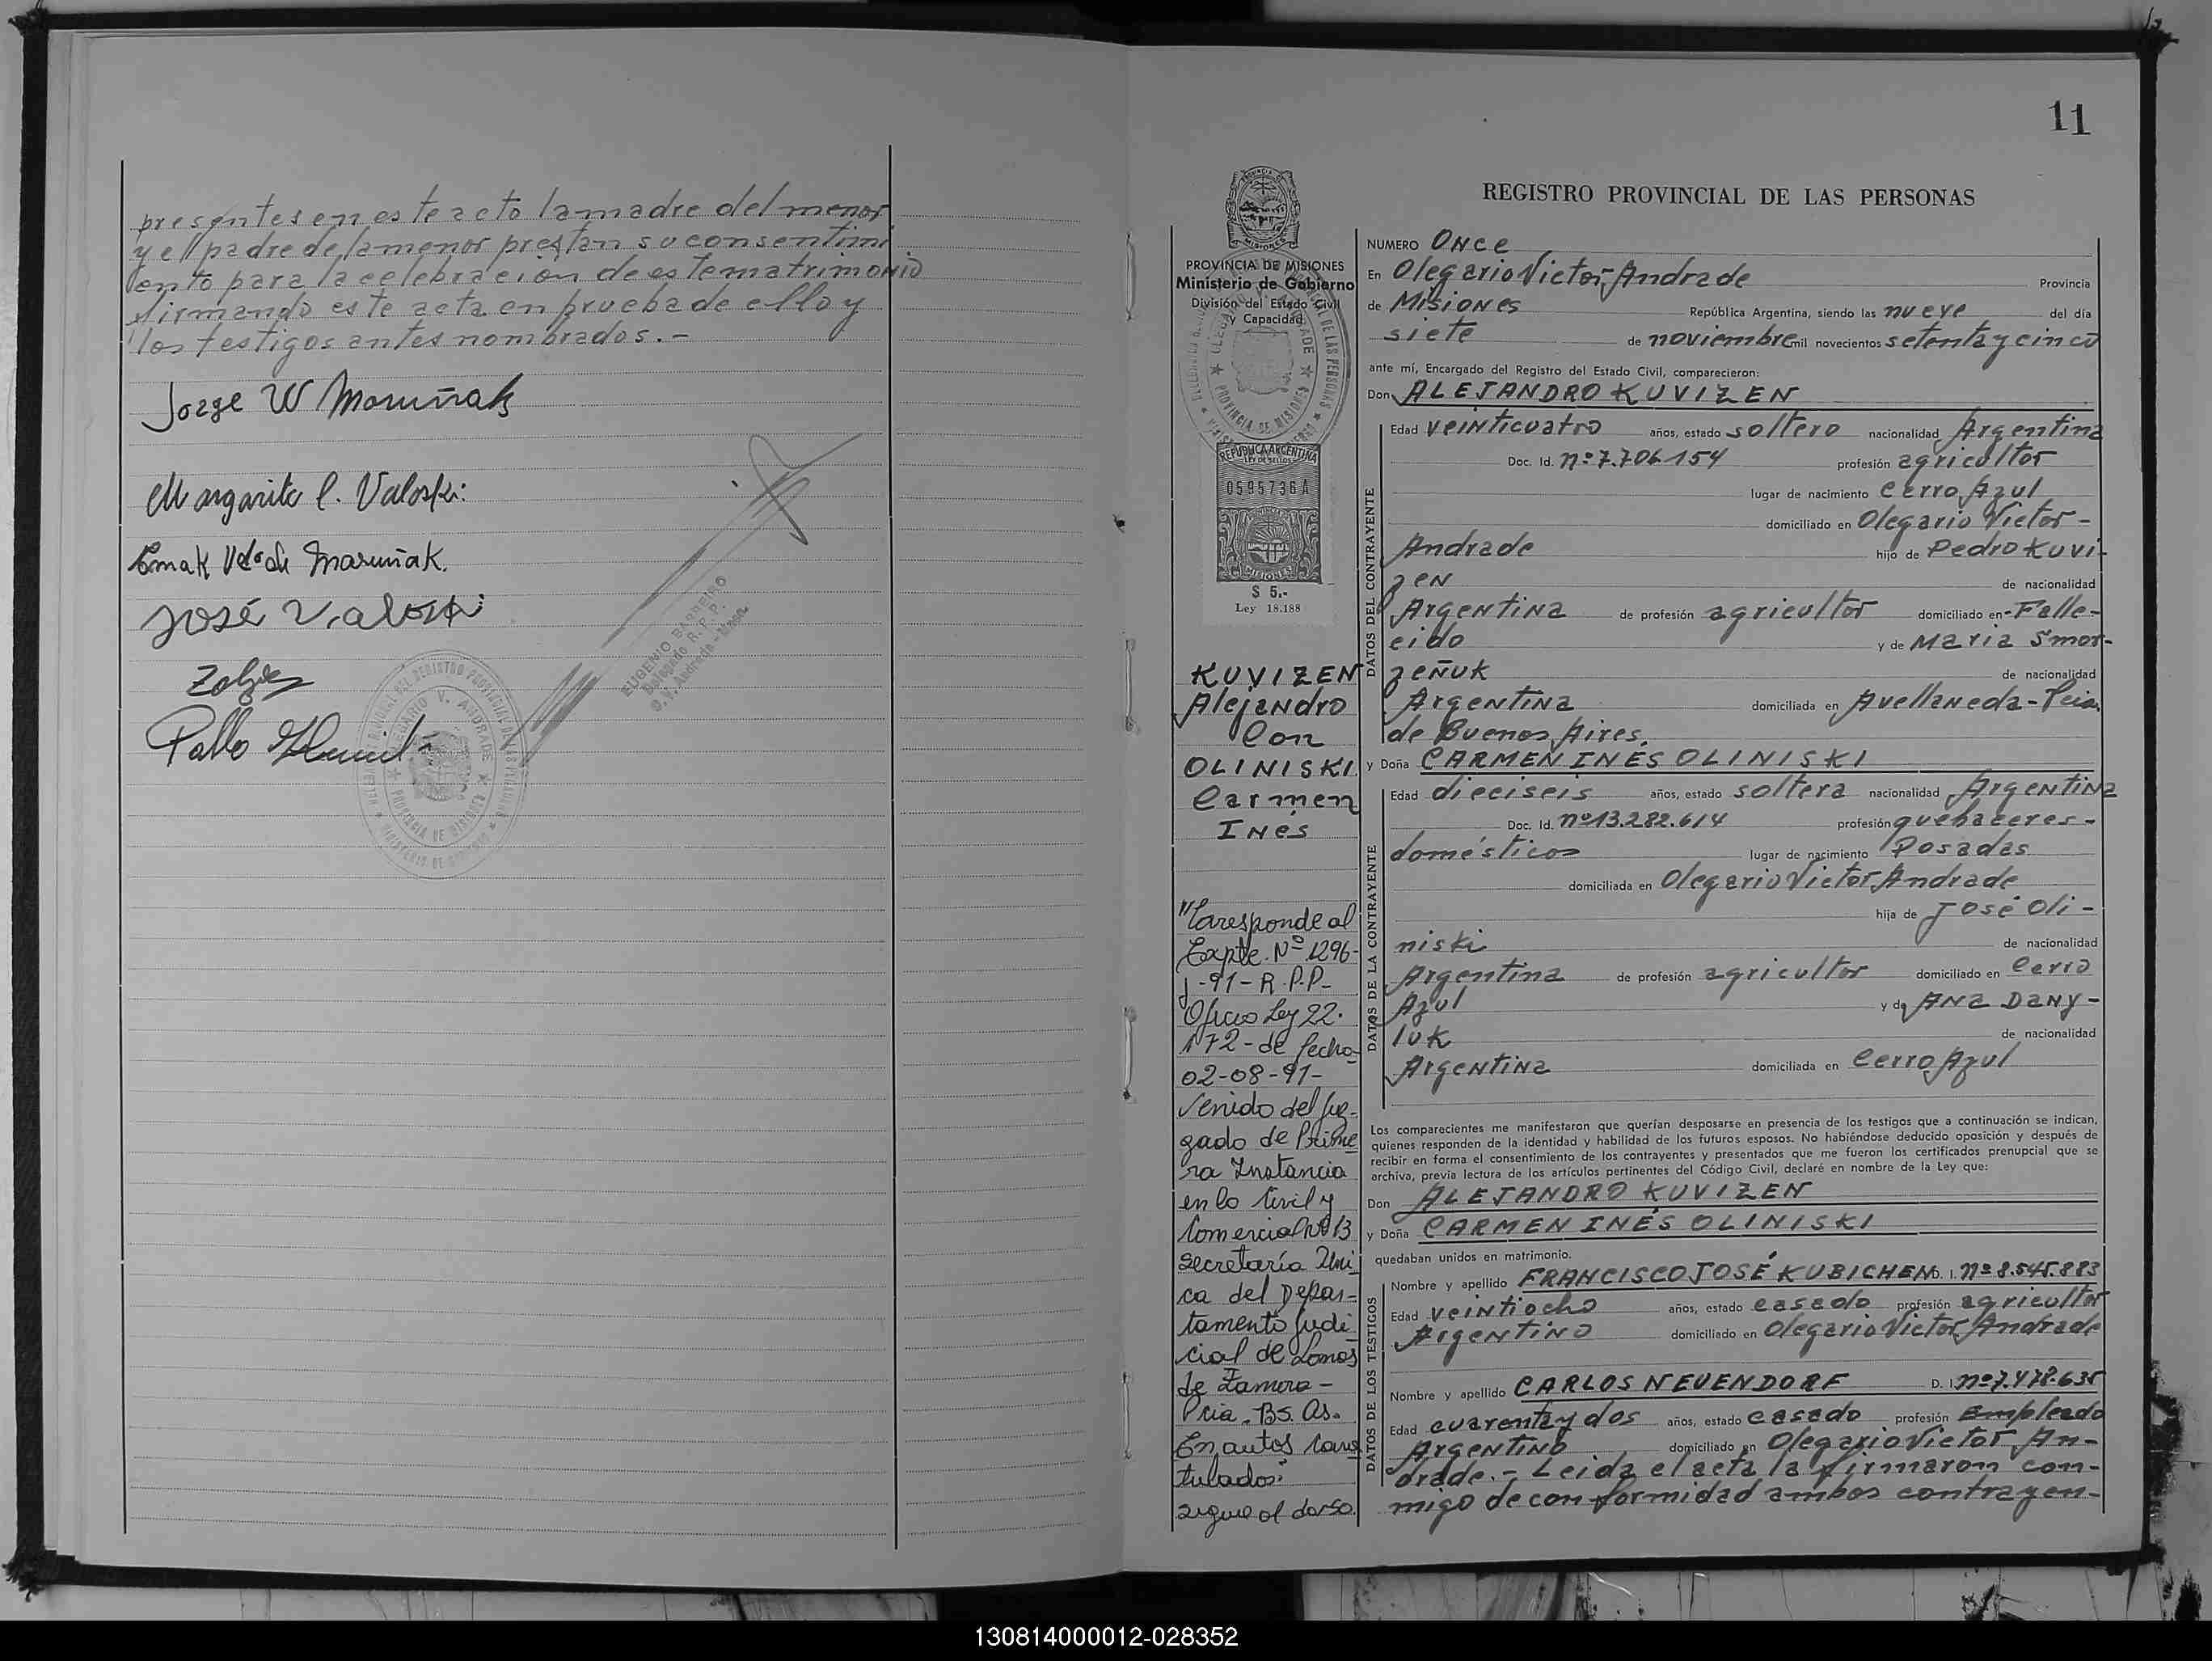 presentes en este acto la madre del menor
y el padre de la menor prestan su consentimi
ento para la celebración de este matrimonio
firmando este acta en prueba de ello y
los testigos antes nombrados.-
Jorge W Maruñak
Margarita C. Valoski
Emak Vda de Maruñak.
José Valoski
Pablo
EUGENIO BARREIRO
Delegado R. P. P.
O. V. Andrade - Mnes.
11
REGISTRO PROVINCIAL DE LAS PERSONAS
PROVINCIA DE MISIONES
Ministerio de Gobierno
División del Estado Civil
y Capacidad
REPUBLICA ARGENTINA
LEY DE SELLOS
0595736A
MISIONES
$ 5.-
Ley 18.188
KUVIZEN
Alejandro
Con
OLINISKI
Carmen
INés
"Coresponde al
Expte. Nº 1296-
J-91-R.P.P-
Oficio Ley 22.
172-de fecha
02-08-91-
Venido del Juz-
gado de Prime
ra Instancia
en lo Civil y
Comercial Nº 13
secretaría Uni
ca del Depar-
tamento Judi
cial de Lomas
de Zamora-
Pcia. Bs. As.
En autos Cara
tulados:
sigue al dorso.
NUMERO ONce
En Olegario Victor Andrade Provincia
de Misiones República Argentina, siendo las nueve del día
siete de noviembre mil novecientos setenta y cinco
ante mí, Encargado del Registro del Estado Civil, comparecieron:
Don ALEJANDRO KUVIZEN
DATOS DEL CONTRAYENTE
Edad veinticuatro años, estado soltero nacionalidad Argentina
Doc. Id. nº 7.706.154 profesión agricultor
lugar de nacimiento Cerro Azul
domiciliado en Olegario Victor-
Andrade hijo de Pedro Kuvi-
zen de nacionalidad
Argentina de profesión agricultor domiciliado en-Falle-
cido y de Maria Smor-
zeñuk de nacionalidad
Argentina domiciliada en Avellaneda-Pcia.
de Buenos Aires.
y Doña CARMEN INÉS OLINISKI
DATOS DE LA CONTRAYENTE
Edad dieciseis años, estado soltera nacionalidad Argentina
Doc. Id. nº 13.282.614 profesión quehaceres-
domésticos lugar de nacimiento Posadas
domiciliada en Olegario Victor Andrade
hija de José Oli-
niski de nacionalidad
Argentina de profesión agricultor domiciliado en Cerro
Azul y de ANa Dany-
luk de nacionalidad
Argentina domiciliada en Cerro Azul
Los comparecientes me manifestaron que querían desposarse en presencia de los testigos que a continuación se indican,
quienes responden de la identidad y habilidad de los futuros esposos. No habiéndose deducido oposición y después de
recibir en forma el consentimiento de los contrayentes y presentados que me fueron los certificados prenupcial que se
archiva, previa lectura de los artículos pertinentes del Código Civil, declaré en nombre de la Ley que:
Don ALEJANDRO KUVIZEN
y Doña CARMEN INÉS OLINISKI
quedaban unidos en matrimonio.
DATOS DE LOS TESTIGOS
Nombre y apellido FRANCISCO JOSÉ KUBICHEN D. I. nº 8.545.883
Edad veintiocho años, estado casado profesión agricultor
Argentino domiciliado en Olegario Victor Andrade
Nombre y apellido CARLOS NEUENDORF D. I. nº 7.478.635
Edad cuarenta y dos años, estado casado profesión Empleado
Argentino domiciliado en Olegario Victor An-
drade.- Leida el acta la firmaron con-
migo de conformidad ambos contrayen-
130814000012-028352